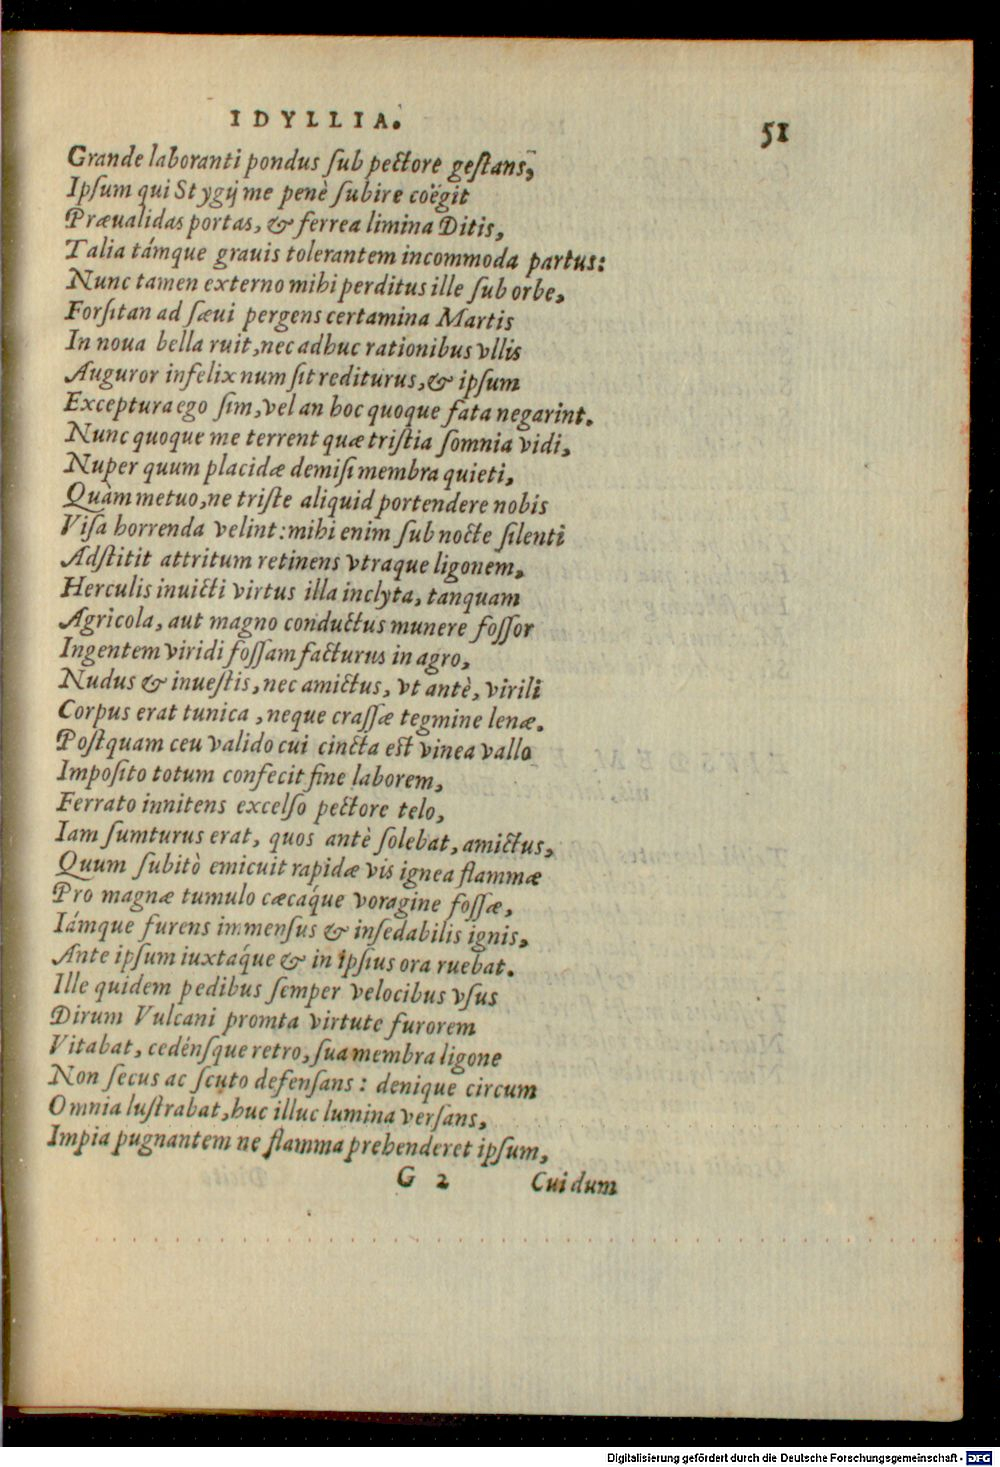 IDYLLIA. 51
Grande laboranti pondus ſub pectore geſtans,
Ipſum qui Stygij me penè ſubire coëgit
Præualidas portas, & ferrea limina Ditis,
Talia támque grauis tolerantem incommoda partus:
Nunc tamen externo mihi perditus ille ſub orbe,
Forſitan ad ſæui pergens certamina Martis
In noua bella ruit, nec adhuc rationibus vllis
Auguror infelix num ſit rediturus, & ipſum
Exceptura ego ſim, vel an hoc quoque fata negarint.
Nunc quoque me terrent quæ triſtia ſomnia vidi,
Nuper quum placidæ demiſi membra quieti,
Quàm metuo, ne triſte aliquid portendere nobis
Viſa horrenda velint: mihi enim ſub nocte ſilenti
Adſtitit attritum retinens vtraque ligonem,
Herculis inuicti virtus illa inclyta, tanquam
Agricola, aut magno conductus munere foſſor
Ingentem viridi foſſam facturus in agro,
Nudus & inueſtis, nec amictus, vt antè, virili
Corpus erat tunica, neque craſſæ tegmine lenæ.
Poſtquam ceu valido cui cincta eſt vinea vallo
Impoſito totum confecit fine laborem,
Ferrato innitens excelſo pectore telo,
Iam ſumturus erat, quos antè ſolebat, amictus,
Quum ſubitò emicuit rapidæ vis ignea flammæ
Pro magnæ tumulo cæcáque voragine foſſæ,
Iámque furens immenſus & inſedabilis ignis,
Ante ipſum iuxtáque & in ipſius ora ruebat.
Ille quidem pedibus ſemper velocibus vſus
Dirum Vulcani promta virtute furorem
Vitabat, cedénſque retro, ſua membra ligone
Non ſecus ac ſcuto defenſans: denique circum
Omnia luſtrabat, huc illuc lumina verſans,
Impia pugnantem ne flamma prehenderet ipſum,
G 2 Cui dum
Digitalisierung gefördert durch die Deutsche Forschungsgemeinschaft - DFG